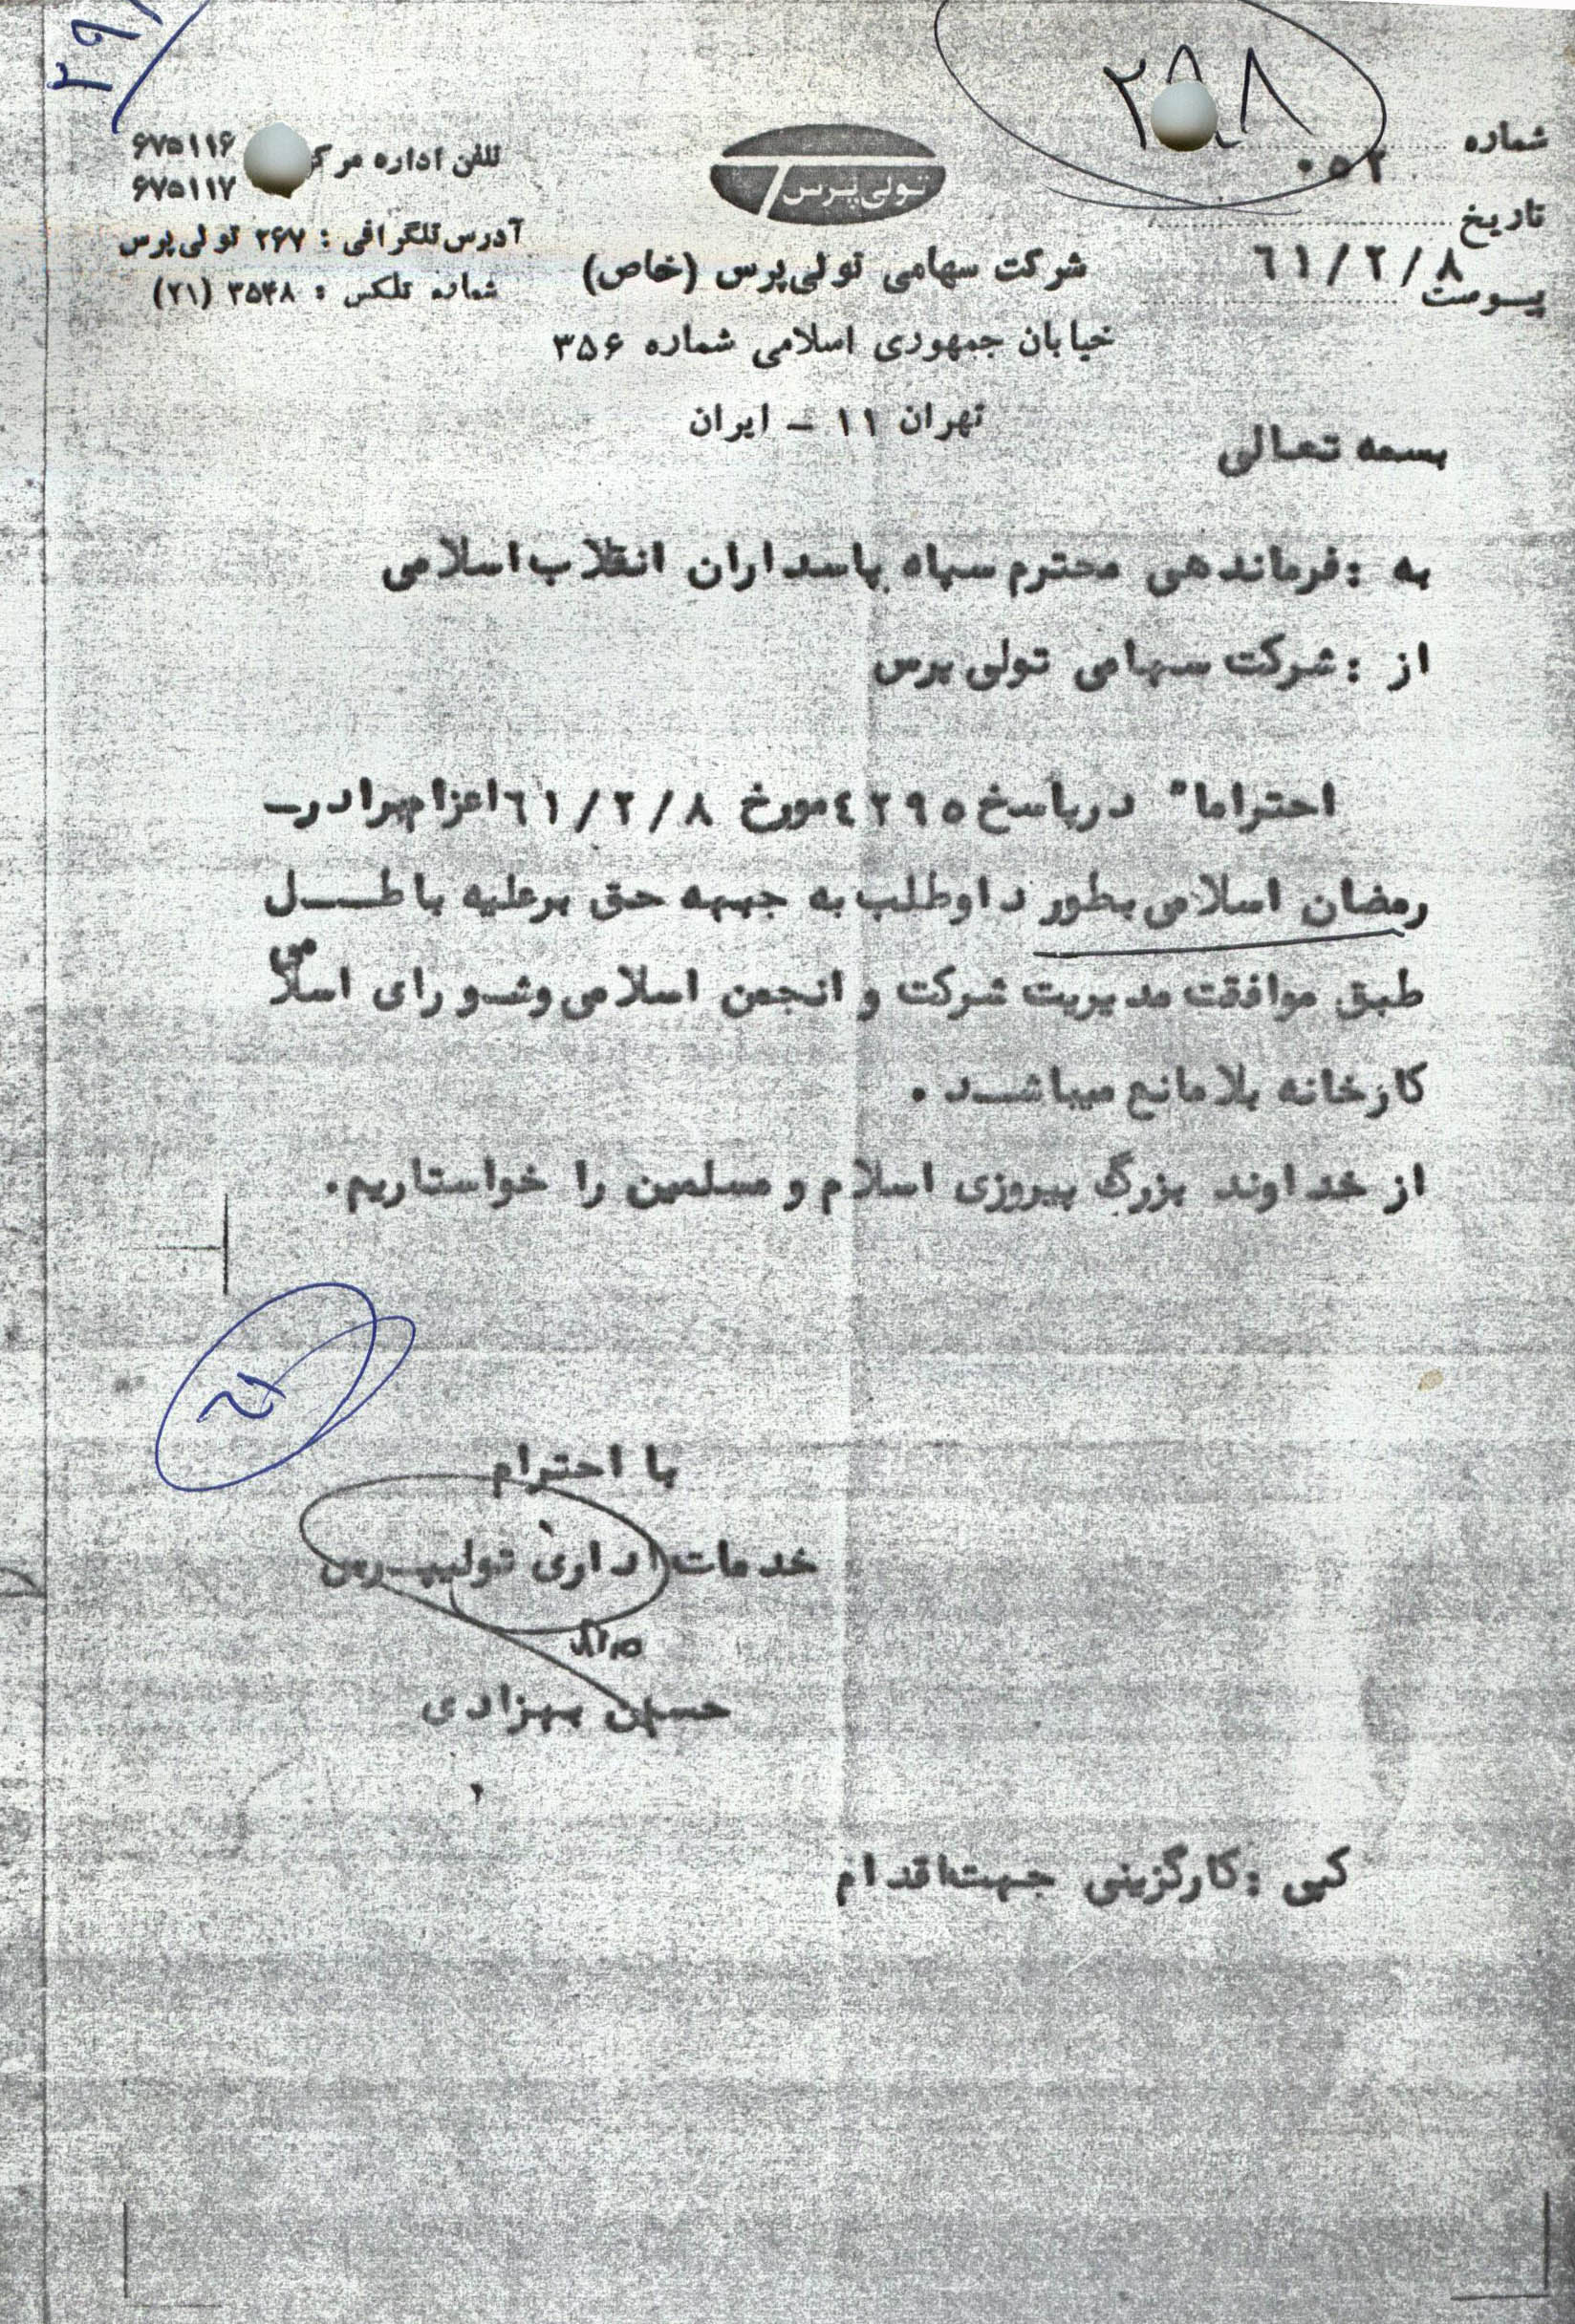 ۲۹۸
شماره
۰۵۲
تاریخ
۶۱/۲/۸
پیوست
تولی‌پرس
شرکت سهامی تولی‌پرس (خاص)
خیابان جمهوری اسلامی شماره ۳۵۶
تهران ۱۱ – ایران
تلفن اداره مرکز ۶۷۵۱۱۶
۶۷۵۱۱۷
آدرس تلگرافی : ۲۶۷ تولی‌پرس
شماره تلکس : ۳۵۴۸ (۲۱)
بسمه تعالی
به : فرماندهی محترم سپاه پاسداران انقلاب اسلامی
از : شرکت سهامی تولی پرس
احتراما" درپاسخ ۴۲۹۵ مورخ ۶۱/۲/۸ اعزام برادر
رمضان اسلامی بطور داوطلب به جبهه حق برعلیه باطـــل
طبق موافقت مدیریت شرکت و انجمن اسلامی وشورای اسلامی
کارخانه بلامانع میباشـد .
از خداوند بزرگ پیروزی اسلام و مسلمین را خواستاریم.
با احترام
خدمات اداری تولیپـرس
حسین بهزادی
کپی : کارگزینی جهت اقدام